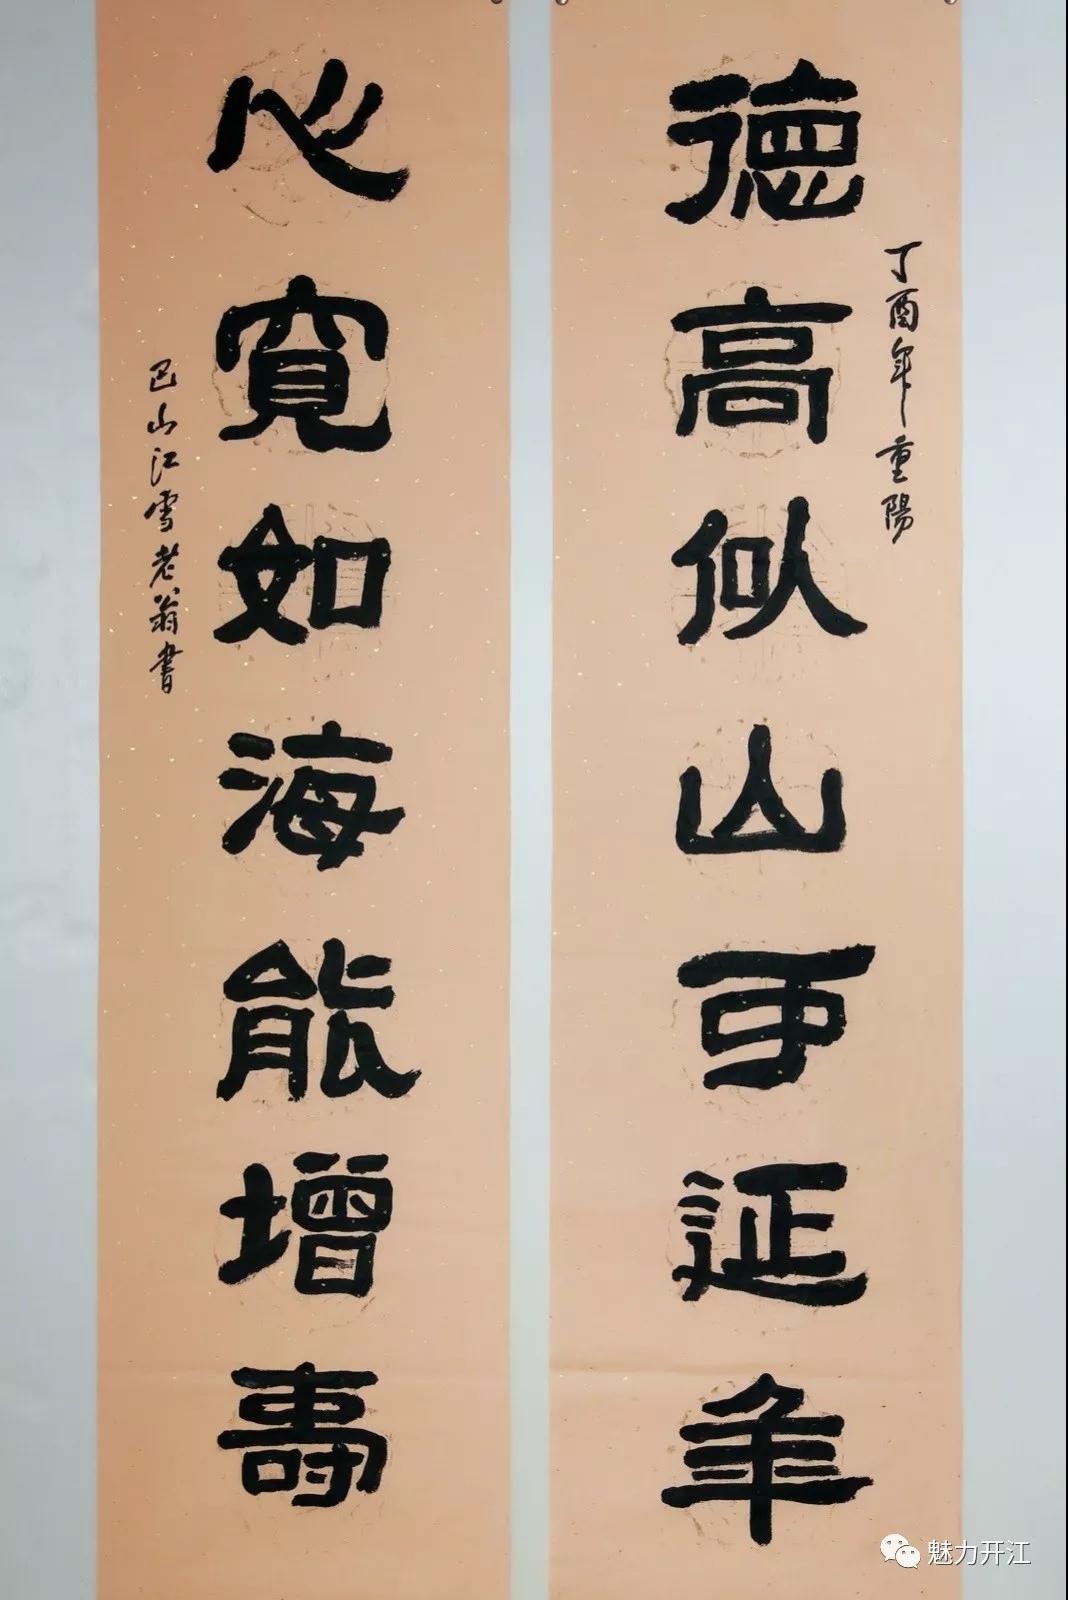 德高似山可延年
丁酉年重陽
心寬如海能增壽
巴山江雪老翁書
魅力开江